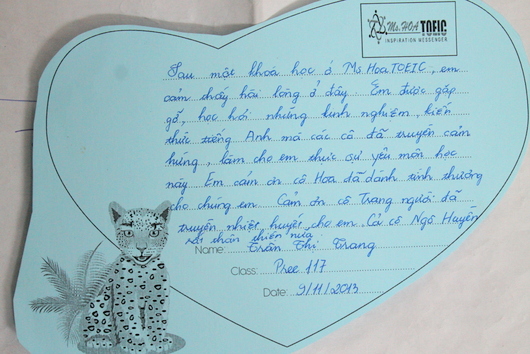 Ms.HOA TOEIC
INSPIRATION MESSENGER
Sau một khoá học ở Ms Hoa TOEIC, em
cảm thấy hài lòng ở đây. Em được gặp
gỡ, học hỏi những kinh nghiệm, kiến
thức tiếng Anh mà các cô đã truyền cảm
hứng, làm cho em thực sự yêu môn học
này. Em cảm ơn cô Hoa đã dành tình thương
cho chúng em. Cảm ơn cô Trang người đã
truyền nhiệt huyết cho em. Cả cô Ngô Huyền
rất thân thiện nữa.
Name: Trần Thị Trang
Class: Pree 117
Date: 9/11/2013